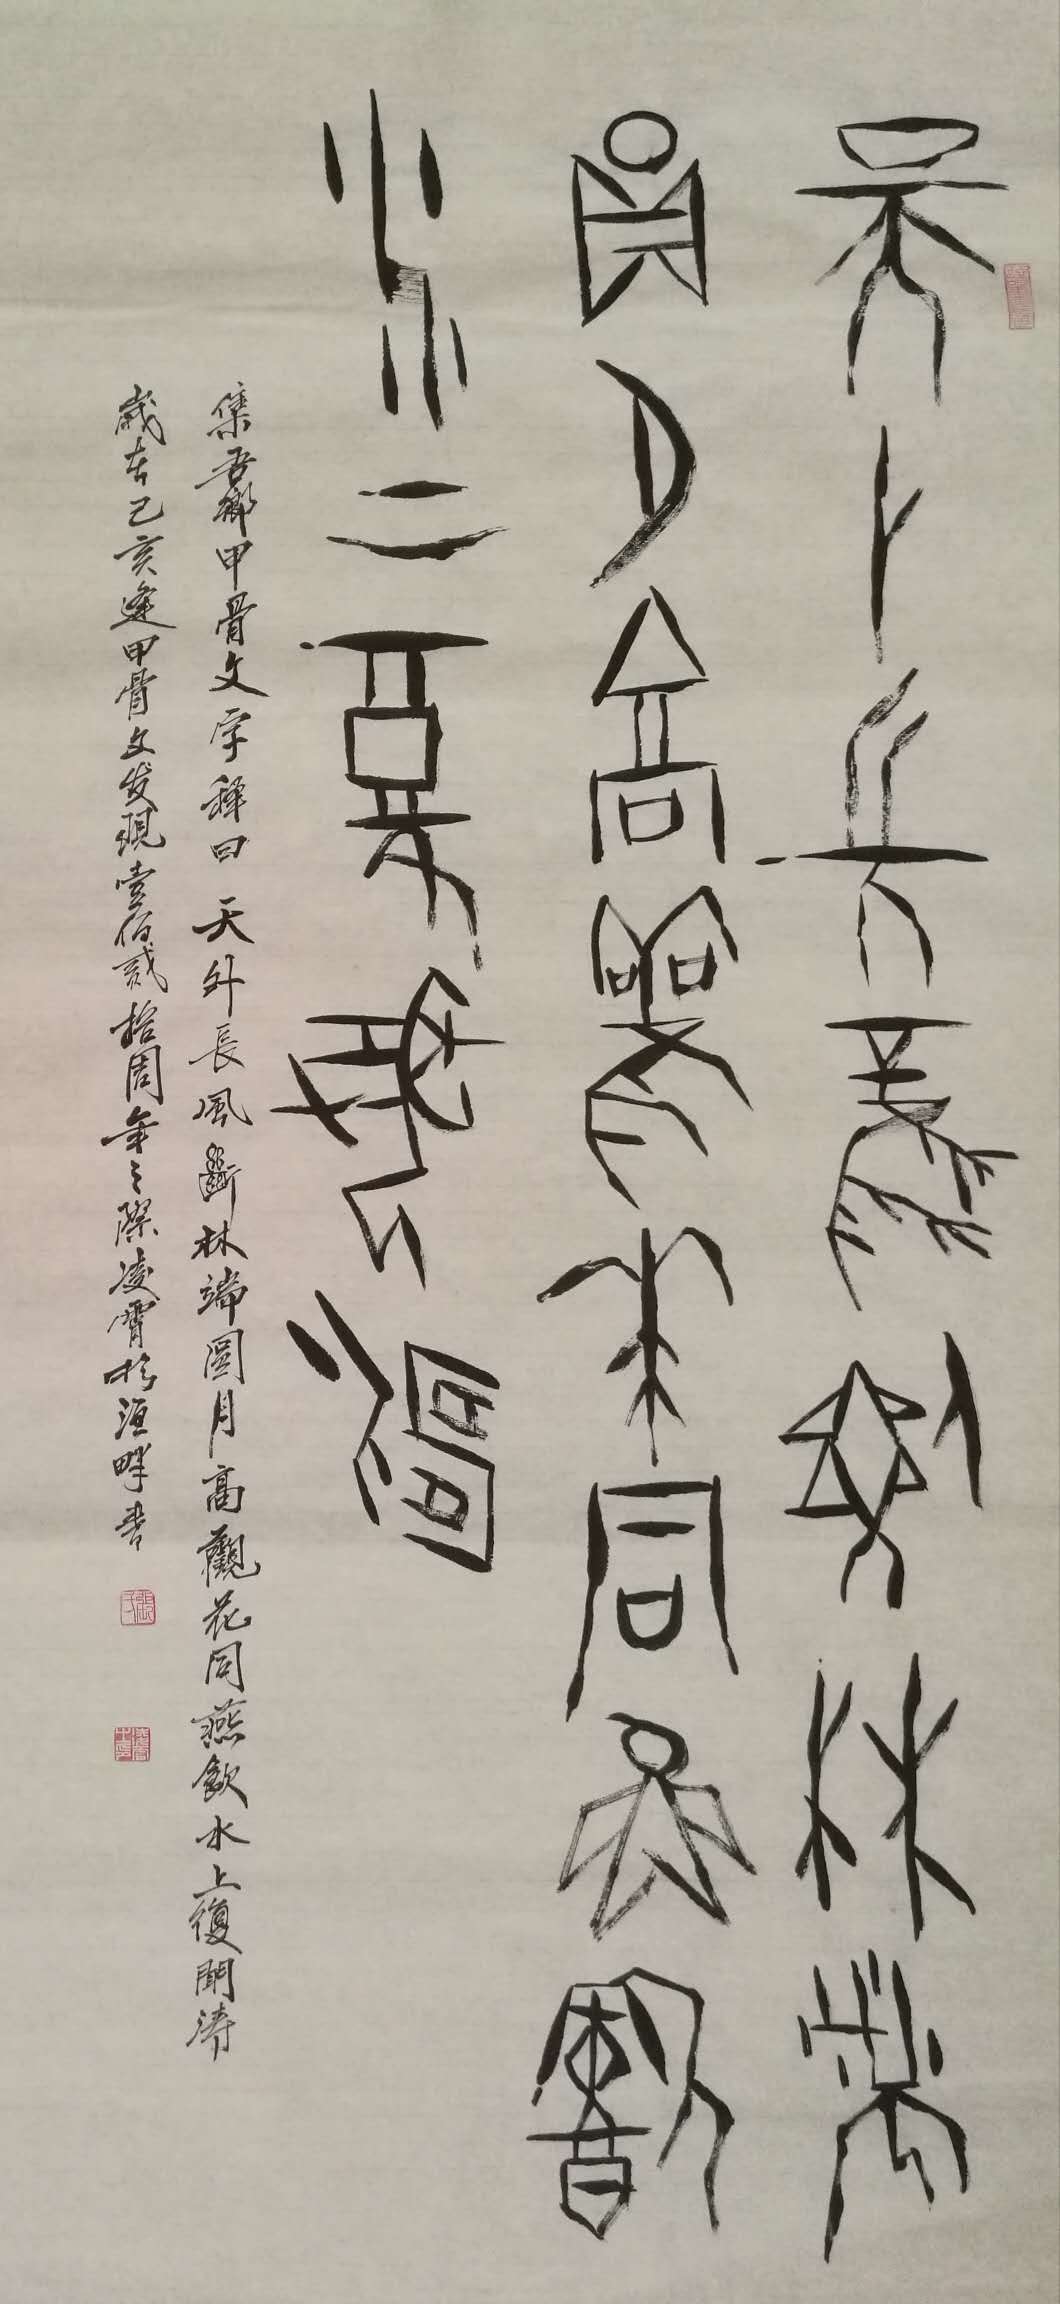 天外長風斷林端
圓月高觀花同燕飲
水上復聞濤
集吾鄉甲骨文字釋曰 天外長風斷林端圓月高觀花同燕飲水上復聞濤
歲在己亥逢甲骨文发現壹佰貳拾周年之際凌霄於洹畔書